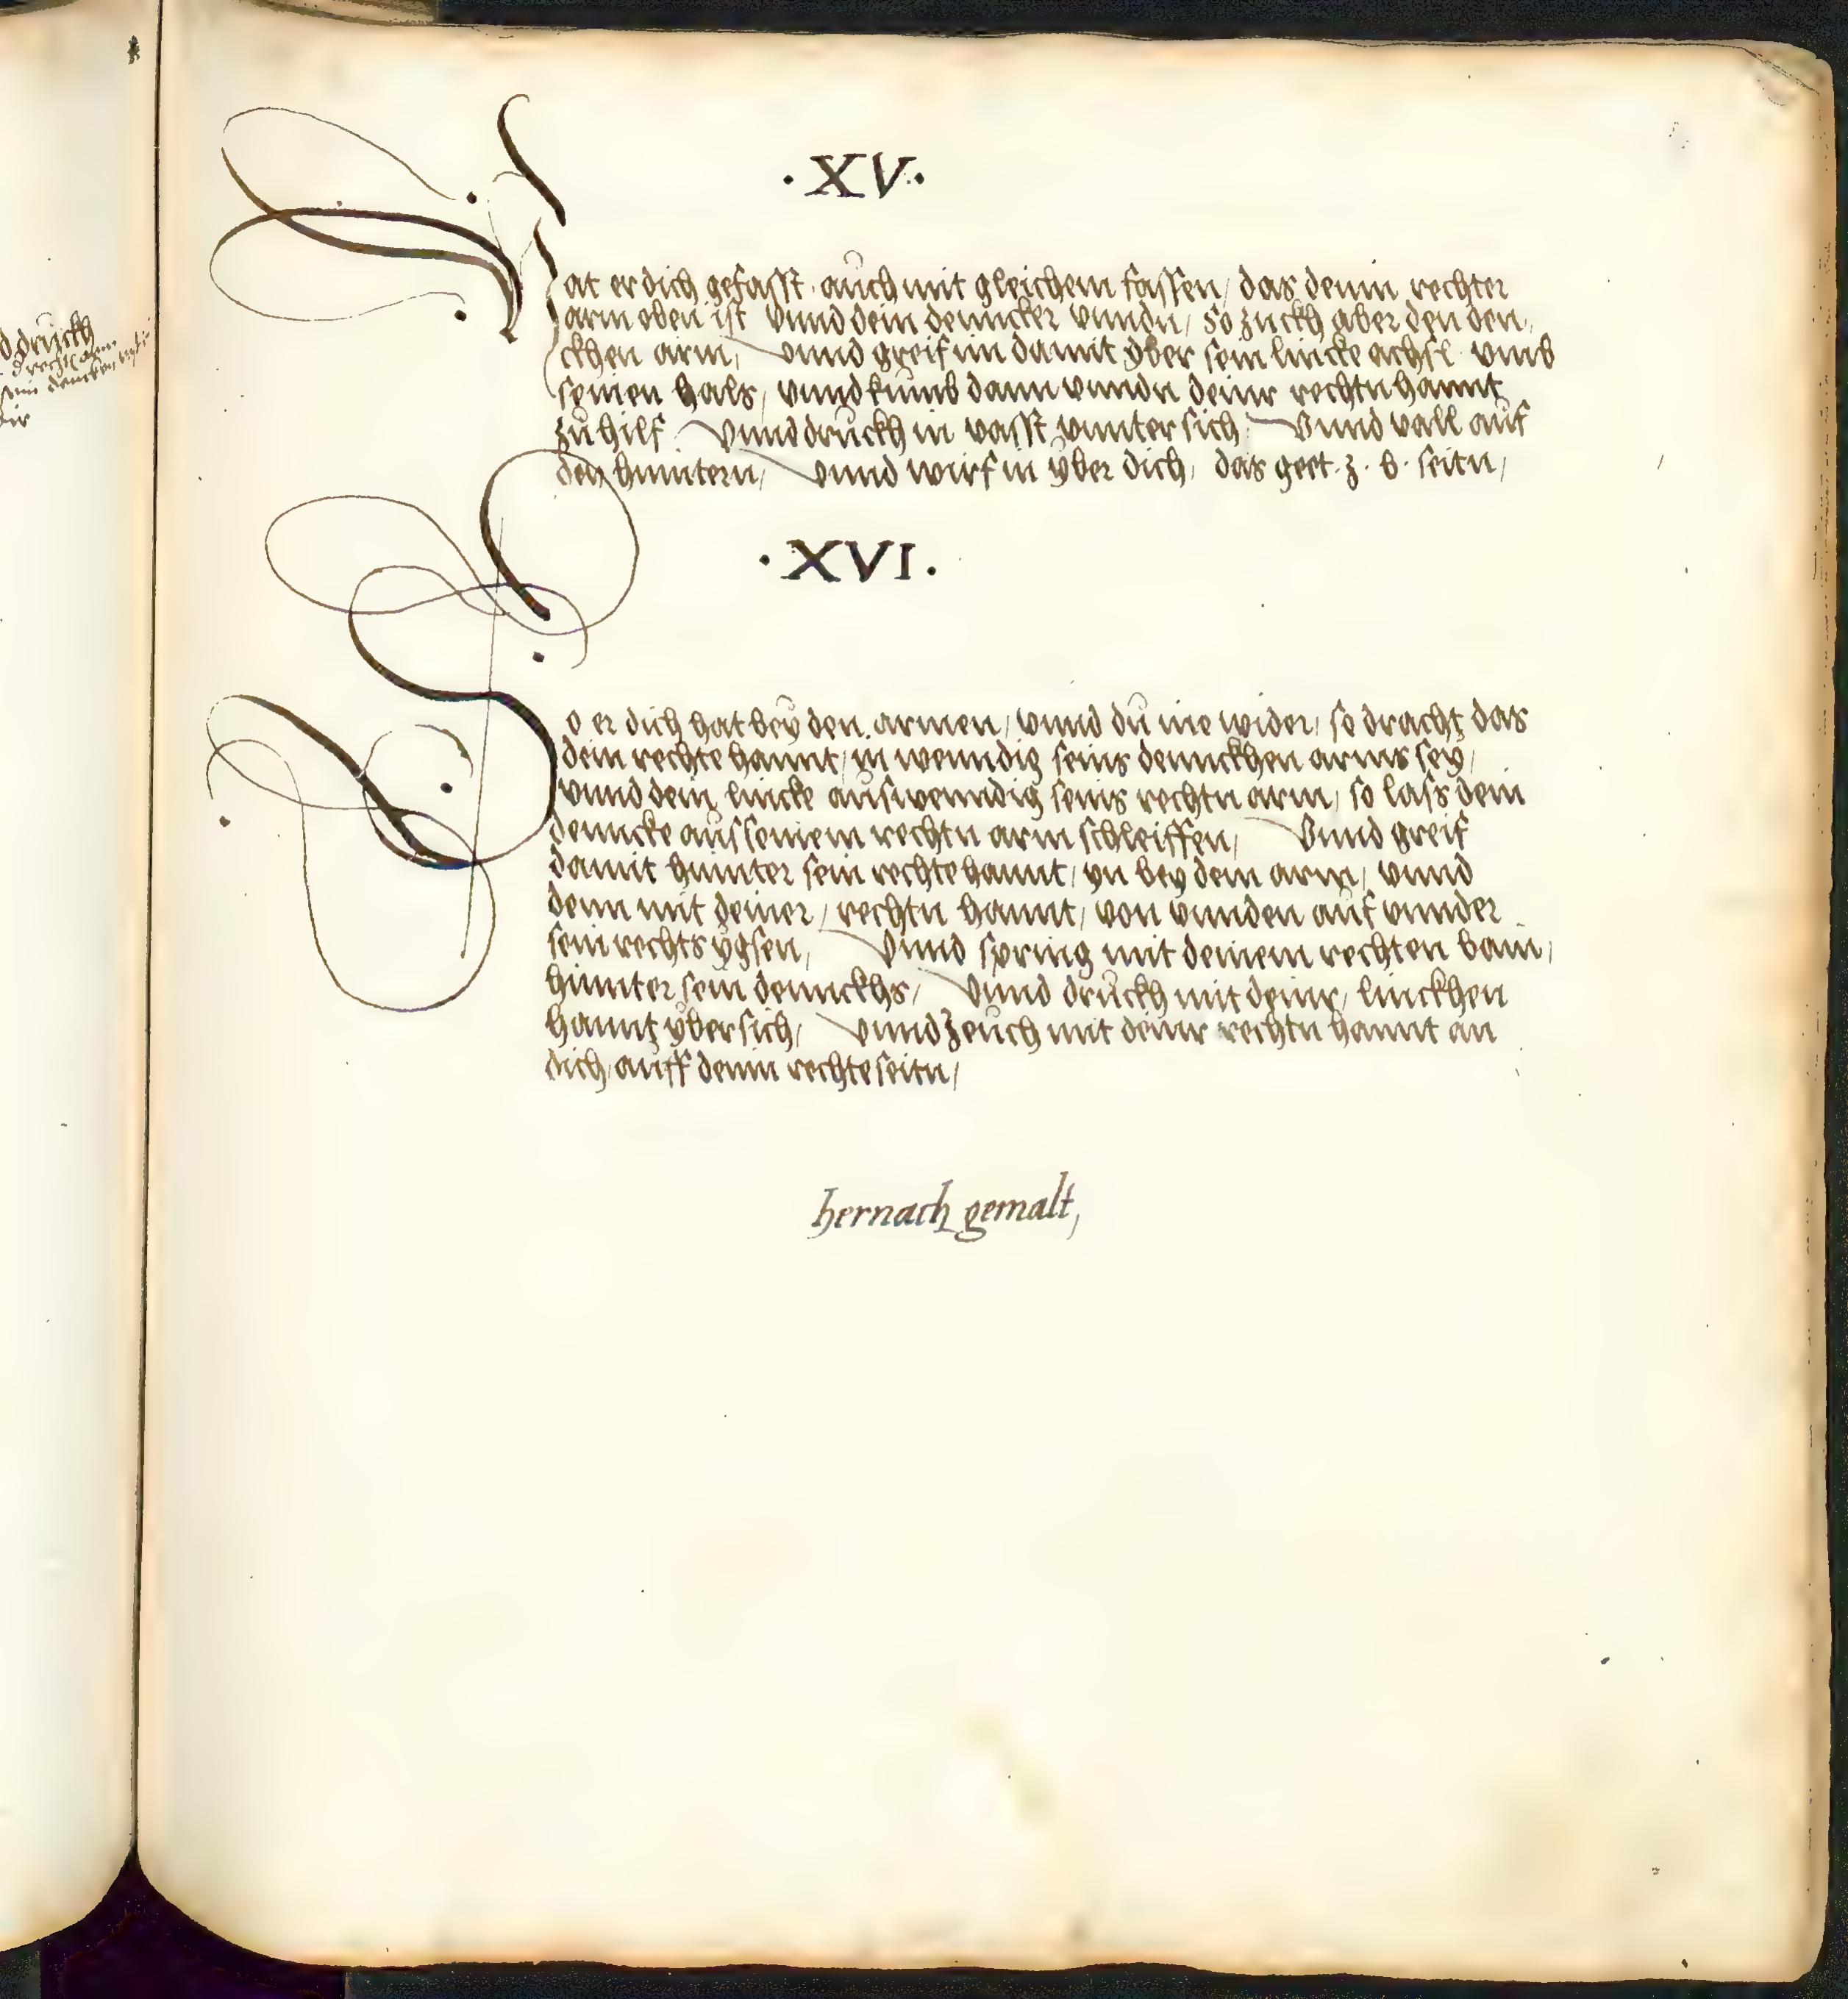 d druckh
d recht arm
sein dencken
dir
·XV·
Hat er dich gefasst auch mit gleichem fassen, das denn rechter
arm oben ist vnnd dein denncker vnndn, so zuckh aber den den,
ckhen arm, vnnd greif im damit yber sein lincke achsl vmb
seinen hals, vnnd kumb dann vnndn deinr rechtn hannt
zu hilf vnnd druckh in vasst vnnter sich, Vnnd vall auf
den hinntern, vnnd wirf in yber dich, das geet · z · b · seitn,
·XVI·
So er dich hat bey den armen, vnnd du ine wider, so dracht das
dein rechte hannt, in wenndig seins dennckhen arms sey,
vnnd dein lincke auswenndig seins rechtn arm, so lass dein
denncke aus seinem rechtn arm schleiffen, Vnnd greif
damit hinnter sein rechte hannt, yn bey dem arm, vnnd
denn mit deiner, rechtn hannt, von vnnden auf vnnder
sein rechts ygsen, Vnnd spring mit deinem rechten bain,
hinnter sein dennckhs, Vnnd druckh mit deinr, linckhen
hannt yber sich, vnnd zeuch mit deinr rechtn hannt an
dich, auff denn rechte seitn,
hernach gemalt,